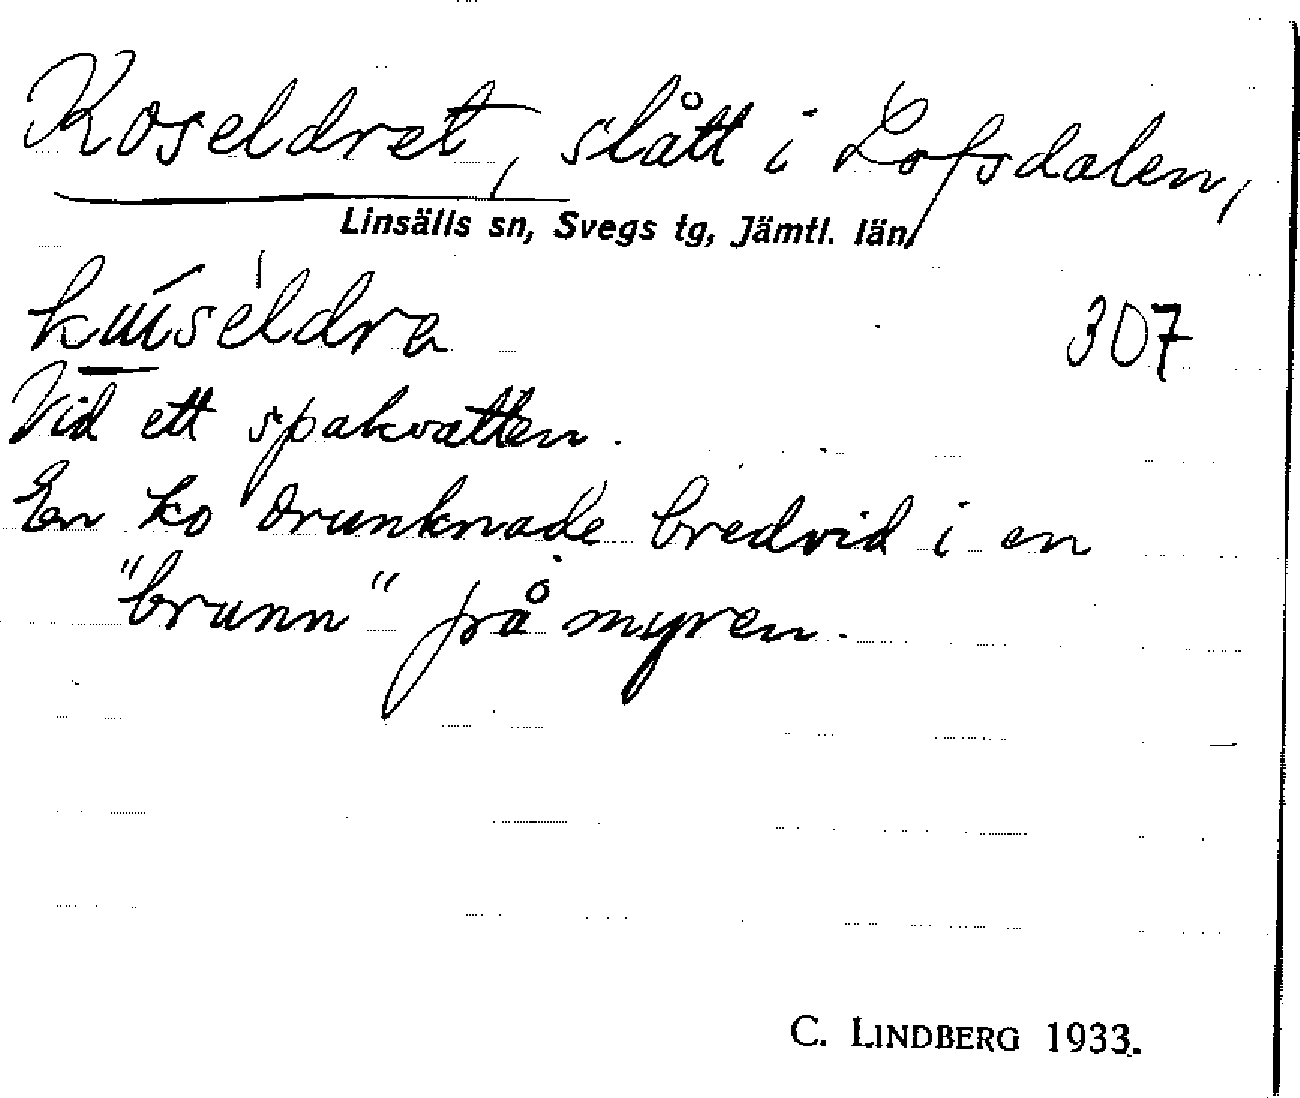 Koseldret, slått i Lofsdalen,
Linsälls sn, Svegs tg, Jämtl. län
307
Vid ett spakvatten.
En ko drunknade bredvid i en
"brunn" på myren.
C. LINDBERG 1933.